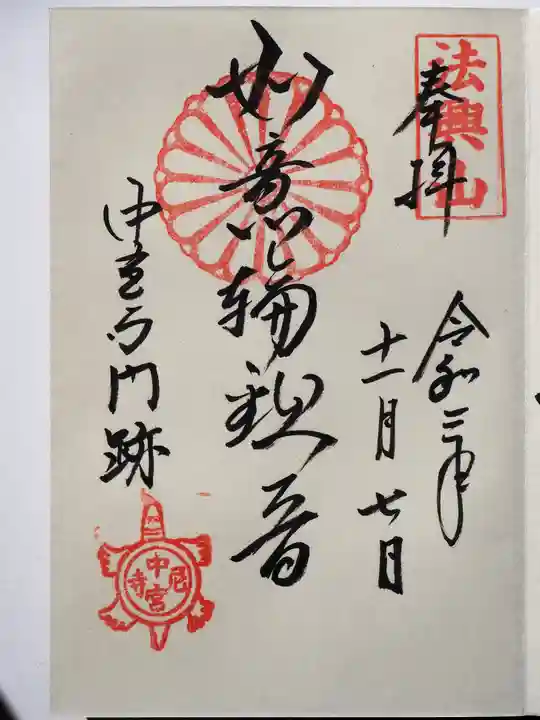 法興山
奉拝
令和二年
十一月七日
如意輪観音
中宮寺門跡
中宮寺
尼